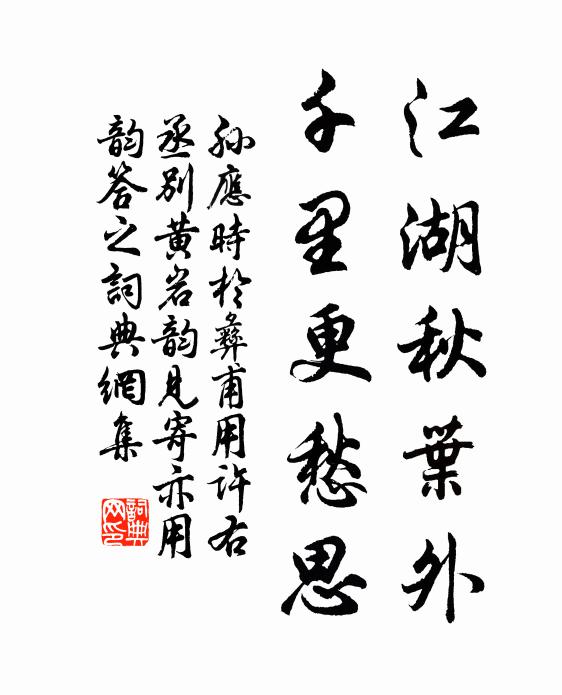 江湖秋葉外
千里更愁思
孫應時於彝甫用許右
丞別黄岩韵見寄亦用
韵答之詞典網集
詞典网印